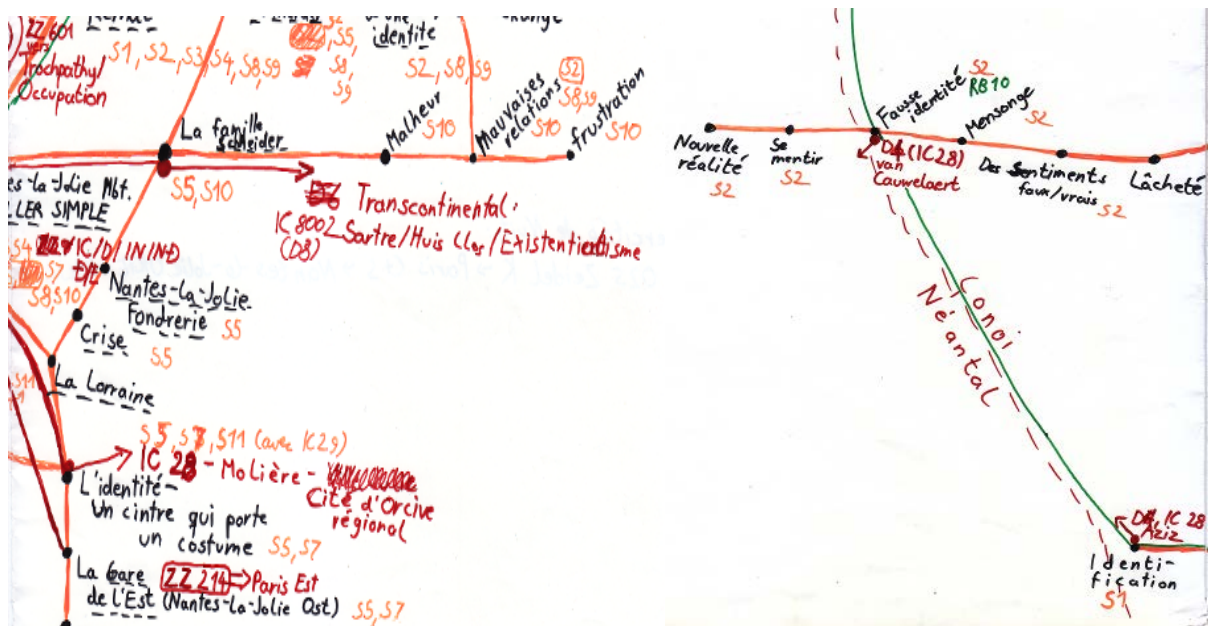 ZZ 601
vers
Trochpathy/
Occupation
S1, S2, S3, S4, S8, S9
S5,
S8,
S9
d'une
identité
S2, S8, S9
change
S2
S8, S9
La famille
Schneider
S5, S10
Malheur
S10
Mauvaises
relations
S10
frustration
S10
Transcontinental:
IC 8002
(D8)
Sartre/Huis Clos/Existentialisme
es-la-Jolie Mbf.
LLER SIMPLE
S4
IC/D/ININD
D/E
S7
S8, S10
Nantes-la-Jolie-
Fondrerie
S5
Crise
S5
La Lorraine
S11
S5, S7, S11 (avec IC29)
IC 28 - Molière -
Cité d'Orcive
régional
L'identité-
un cintre qui porte
un costume
S5, S7
La Gare
de l'Est (Nantes-la-Jolie Ost)
ZZ 214 ⇒ Paris Est
S5, S7
Nouvelle
réalité
S2
Se
mentir
S2
Fausse
identité
S2
RB10
Mensonge
S2
D4 (IC28)
van
Cauwelaert
Des Sentiments
faux/vrais
S2
Lâcheté
Conoi
Néantal
D4, IC 28
Aziz
Identi-
fication
S1